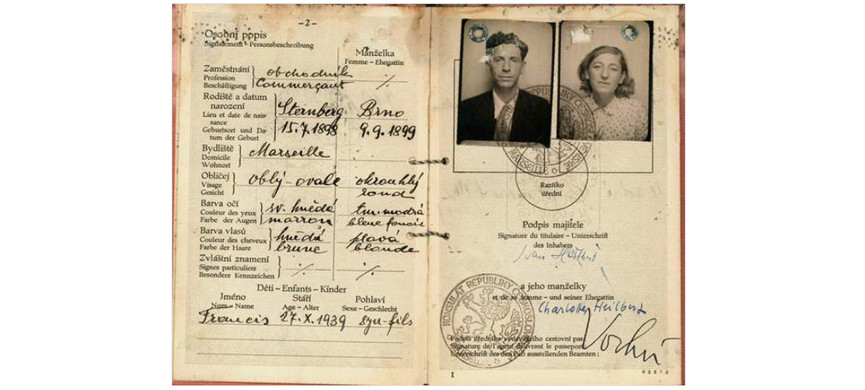 - 2 -
Osobní popis
Signalement - Personsbeschreibung
Manželka
Femme - Ehegattin
Zaměstnání
Profession
Beschäftigung
obchodník
Commerçant
Rodiště a datum
narození
Lieu et date de nais-
sance
Geburtsort und Da-
tum der Geburt
Sternberg
15.7.1898
Brno
9.9.1899
Bydliště
Domicile
Wohnort
Marseille
Obličej
Visage
Gesicht
oblý-ovale
okrouhlý
rond
Barva očí
Couleur des yeux
Farbe der Augen
sv. hnědá
marron
tm. modrá
bleue foncée
Barva vlasů
Couleur des cheveux
Farbe der Haare
hnědá
brune
plavá
blonde
Zvláštní znamení
Signes particuliers
Besondere Kennzeichen
Děti - Enfants - Kinder
Jméno
Nom - Name
Stáří
Age - Alter
Pohlaví
Sexe - Geschlecht
Francis 27.X.1939 syn-fils
Razítko
úřední
Podpis majitele
Signature du titulaire - Unterschrift
des Inhabers
a jeho manželky
et de sa femme - und seiner Ehegattin
Podpis úředníka vydávajícího cestovní pas:
Signature de l'agent délivrant le passeport:
Unterschrift des den Paß ausstellenden Beamten:
1